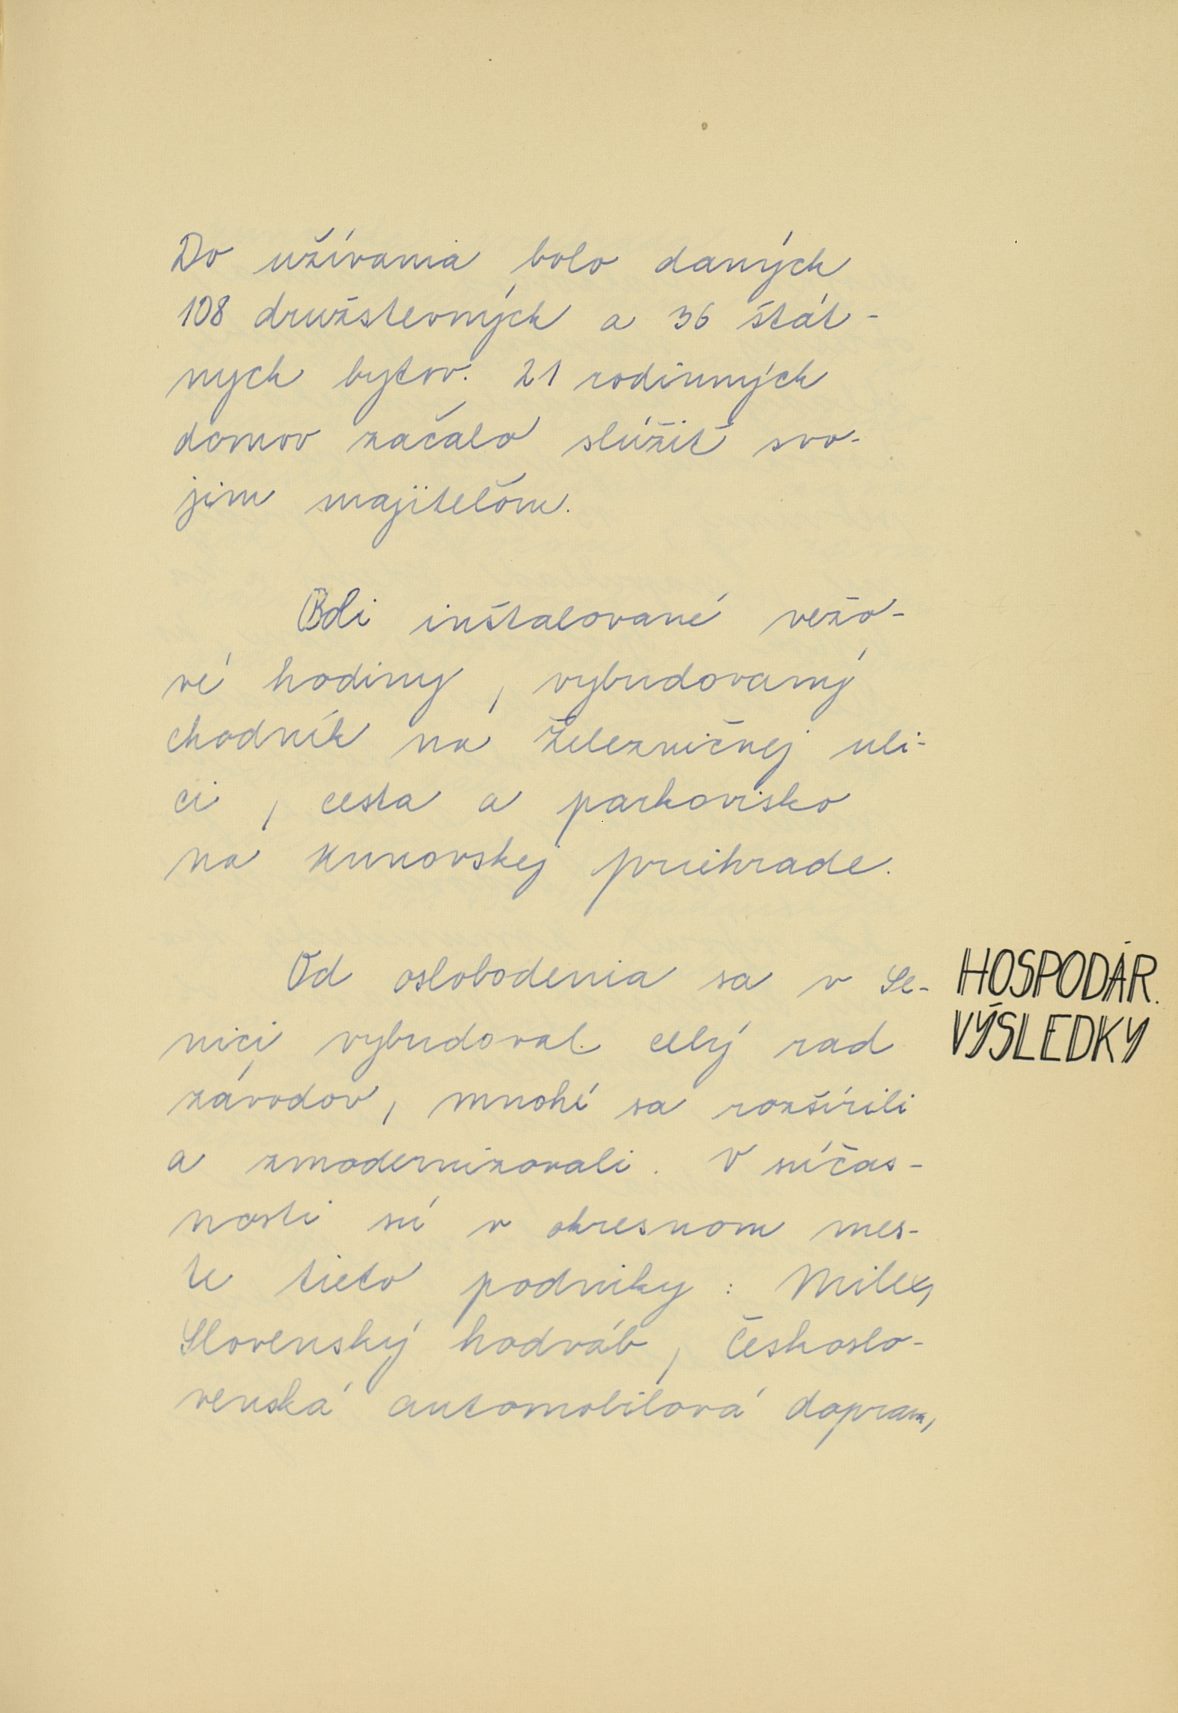 Do užívania bolo daných
108 družstevných a 36 štát-
nych bytov. 21 rodinných
domov začalo slúžiť svo-
jim majiteľom.
Boli inštalované vežo-
vé hodiny, vybudovaný
chodník na Železničnej uli-
ci, cesta a parkovisko
na Kunovskej priehrade.
Od oslobodenia sa v Se-
nici vybudoval celý rad
závodov, mnohé sa rozšírili
a zmodernizovali. V súčas-
nosti sú v okresnom mes-
te tieto podniky: Milex,
Slovenský hodváb, Českoslo-
venská automobilová doprava,
HOSPODÁR.
VÝSLEDKY